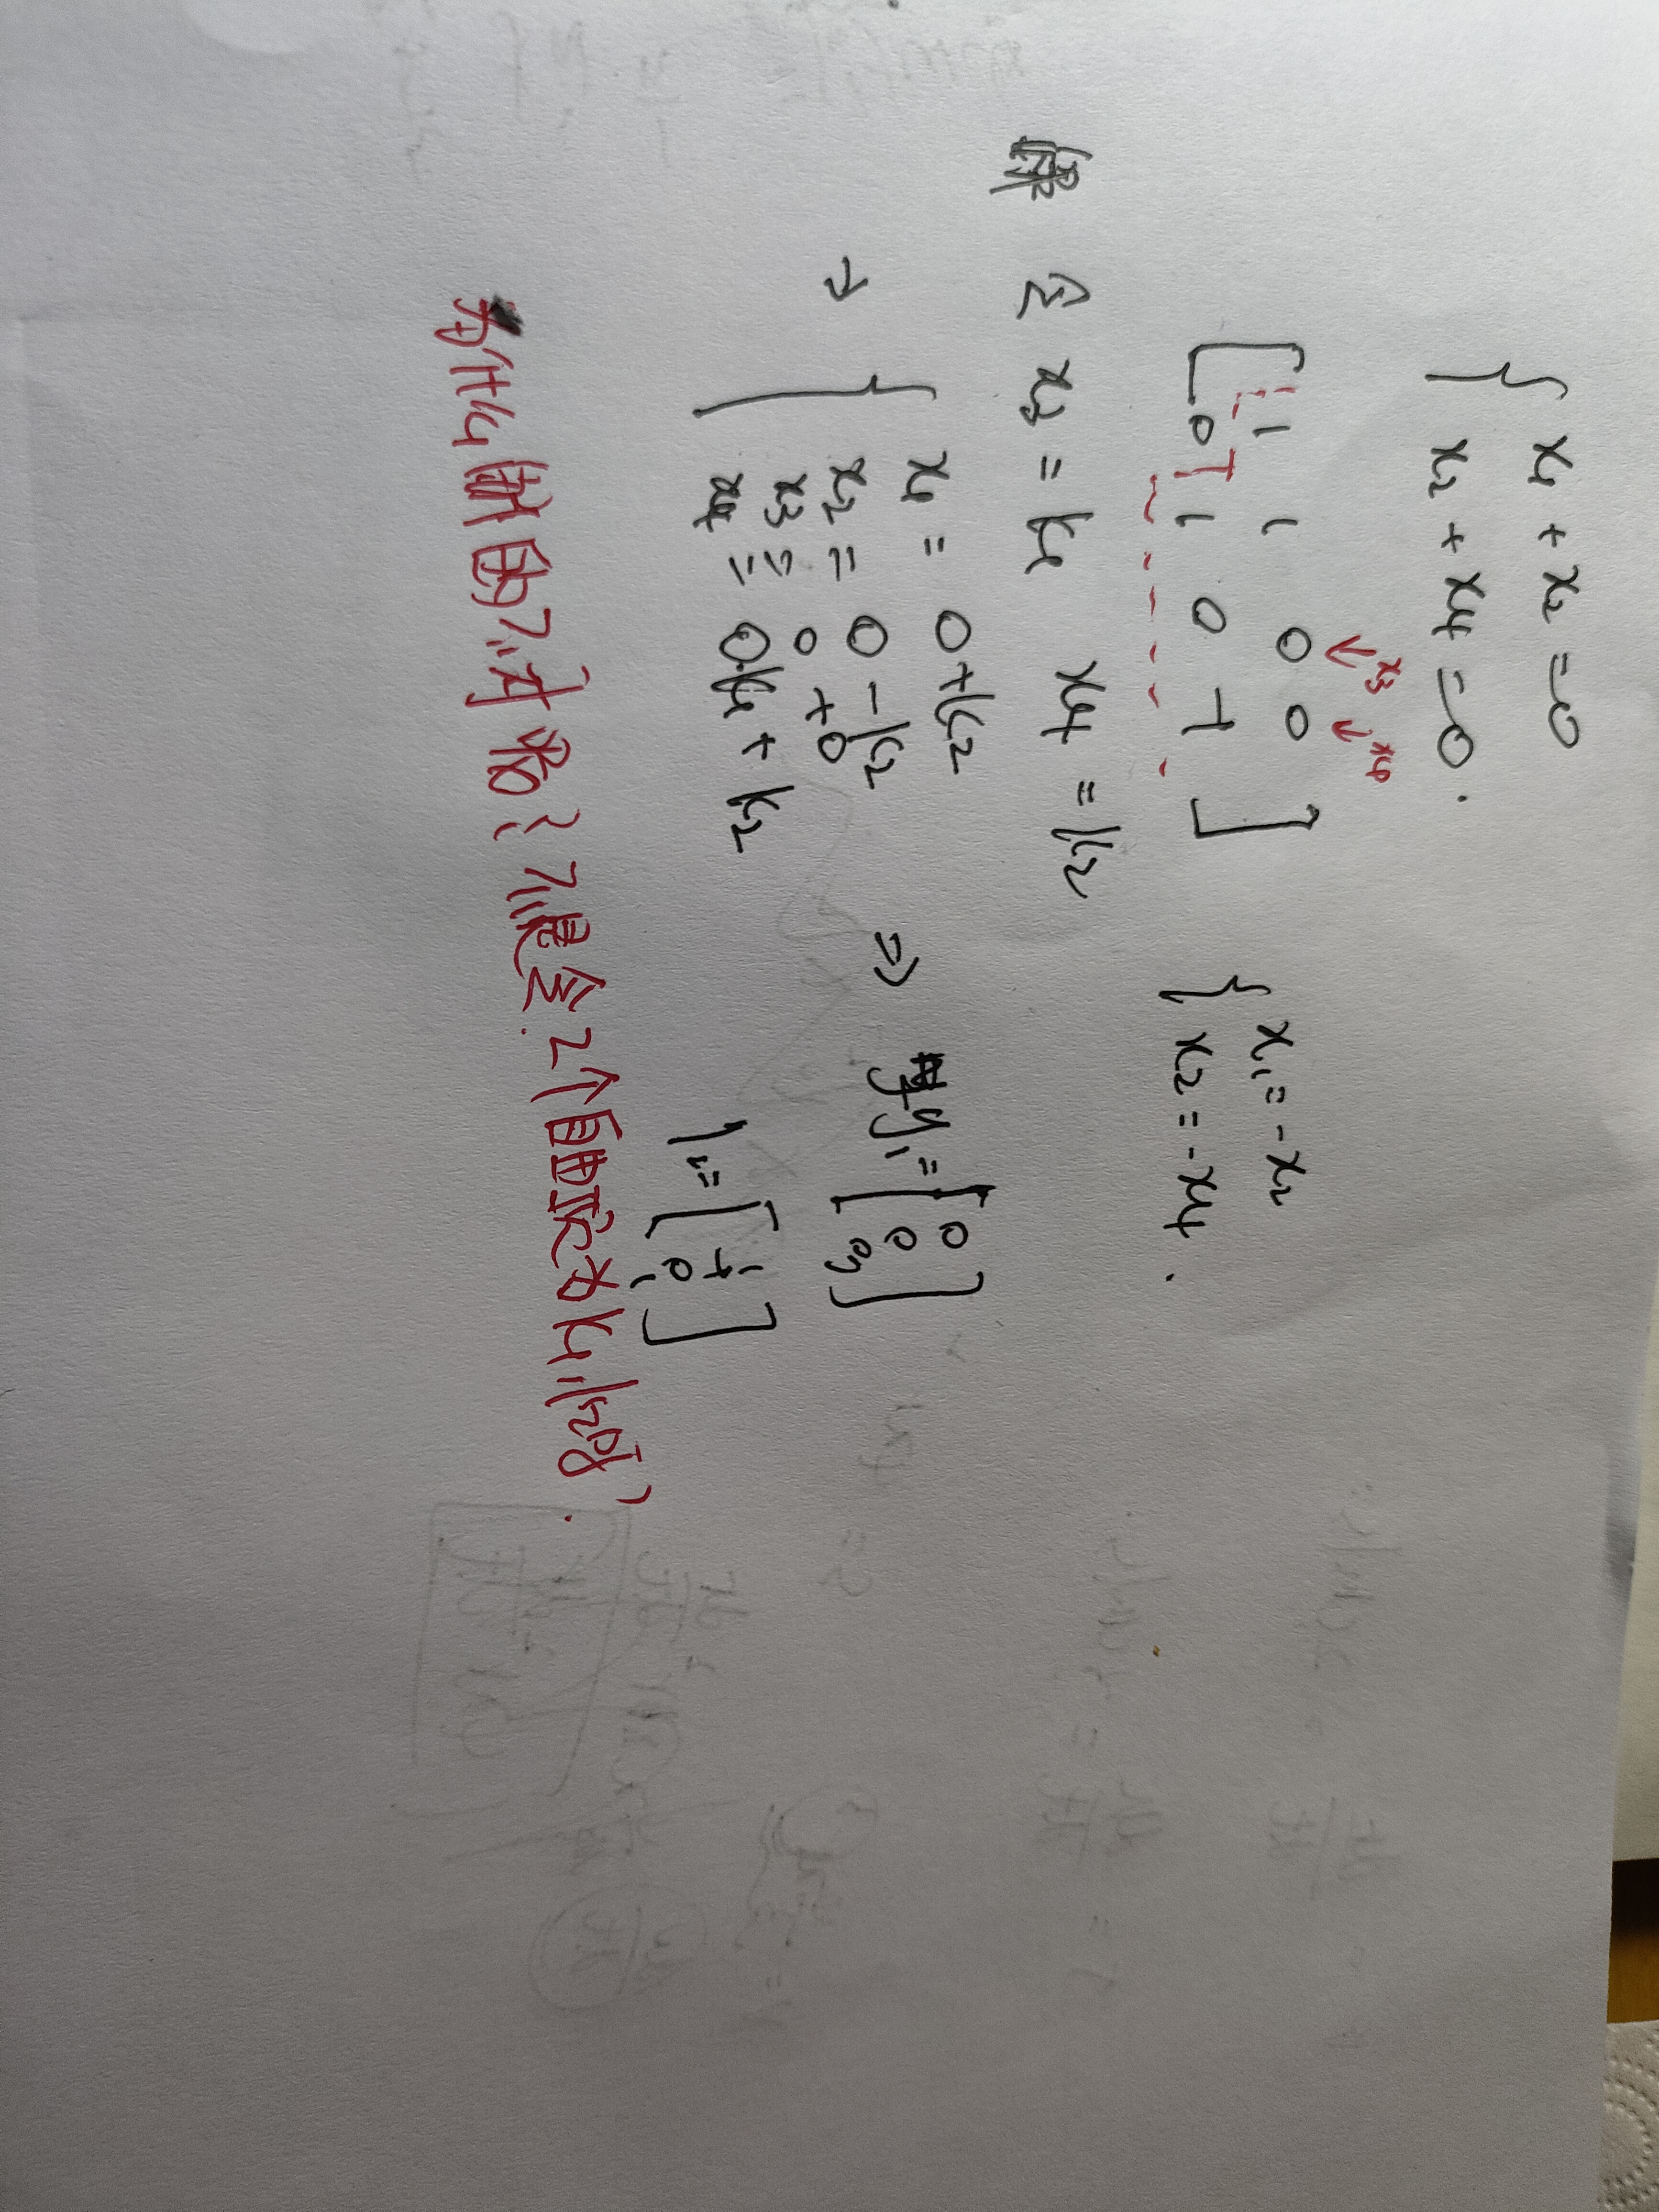 { x₁ + x₂ = 0
x₂ + x₄ = 0.
x₃ x₄
↓ ↓
[ 1 1 0 0
0 1 0 -1 ]
{ x₁ = -x₂
x₂ = -x₄.
令 x₃ = k₁ x₄ = k₂
→ { x₁ = 0 + k₂
x₂ = 0 - k₂
x₃ = 0 + 0
x₄ = 0·k₁ + k₂
⇒ y₁ = [ 0
0
0 ]
= [ 1
-1
0
1 ]
为什么做的不对 呢？不是令2个自由项为k₁,k₂吗、.